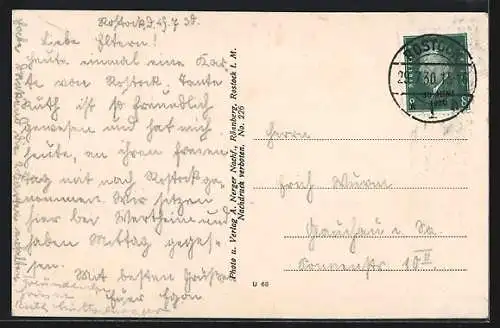 Rostock d. 29.7.30.
Liebe Eltern!
Heute einmal eine Kar-
te von Rostock. Tante
Ruth ist so freundlich
gewesen und hat mich
heute, an ihrem freien
Tag mit nach Rostock ge-
nommen. Wir sitzen
hier bei Wertheim und
haben Mittag geges-
sen.
Mit besten Grüßen
Euer Egon
Ruth
Photo u. Verlag A. Nerger Nachf., Rönnberg, Rostock i. M.
Nachdruck verboten. No. 226
ROSTOCK
29.7.30.
8 8
Herrn
Erich Wurm
Glauchau i. Sa.
Sonnenstr. 10 II
U 68